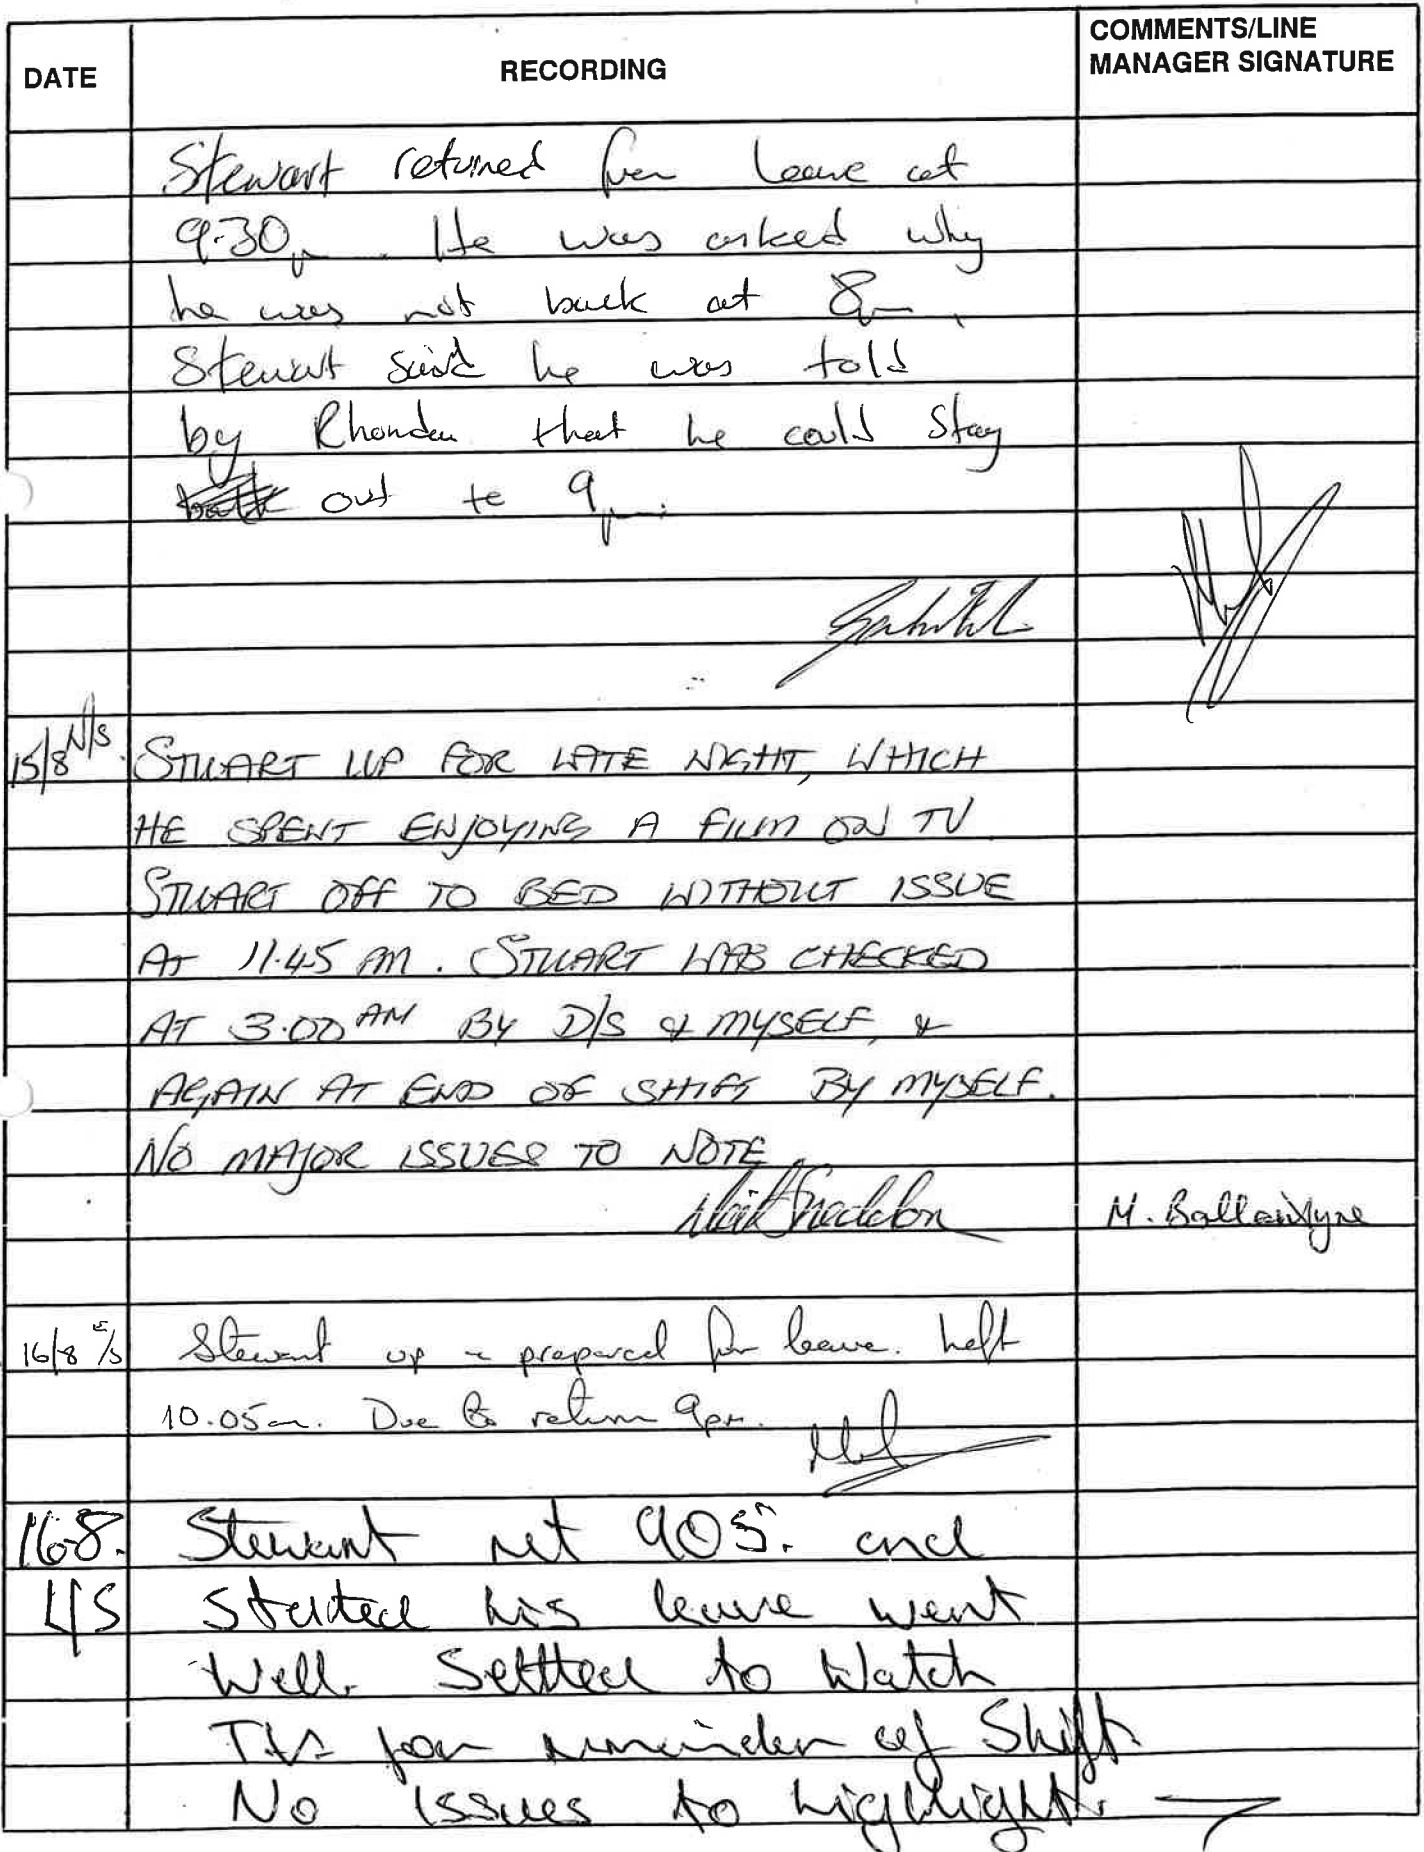 DATE
RECORDING
COMMENTS/LINE
MANAGER SIGNATURE
Stewart returned from leave at
9.30pm. He was asked why
he was not back at 8pm.
Stewart said he was told
by Rhonda that he could stay
out to 9pm.
15/8 N/S STUART UP FOR LATE NIGHT, WHICH
HE SPENT ENJOYING A FILM ON TV
STUART OFF TO BED WITHOUT ISSUE
AT 11.45 PM. STUART WAS CHECKED
AT 3.00 AM BY D/S & MYSELF, &
AGAIN AT END OF SHIFT BY MYSELF.
NO MAJOR ISSUES TO NOTE
M. Ballantyne
16/8 Stewart up & prepared for leave. Left
10.05am. Due to return 9pm.
16-8. Stewart ret 905. and
L/S stated his leave went
Well. Settled to Watch
T.V. for remainder of Shift.
No issues to highlight.